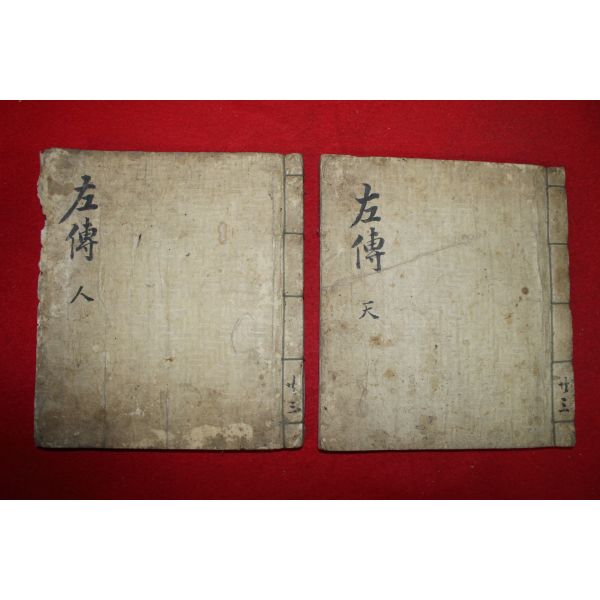 左傳 人
共三
左傳 天
共三